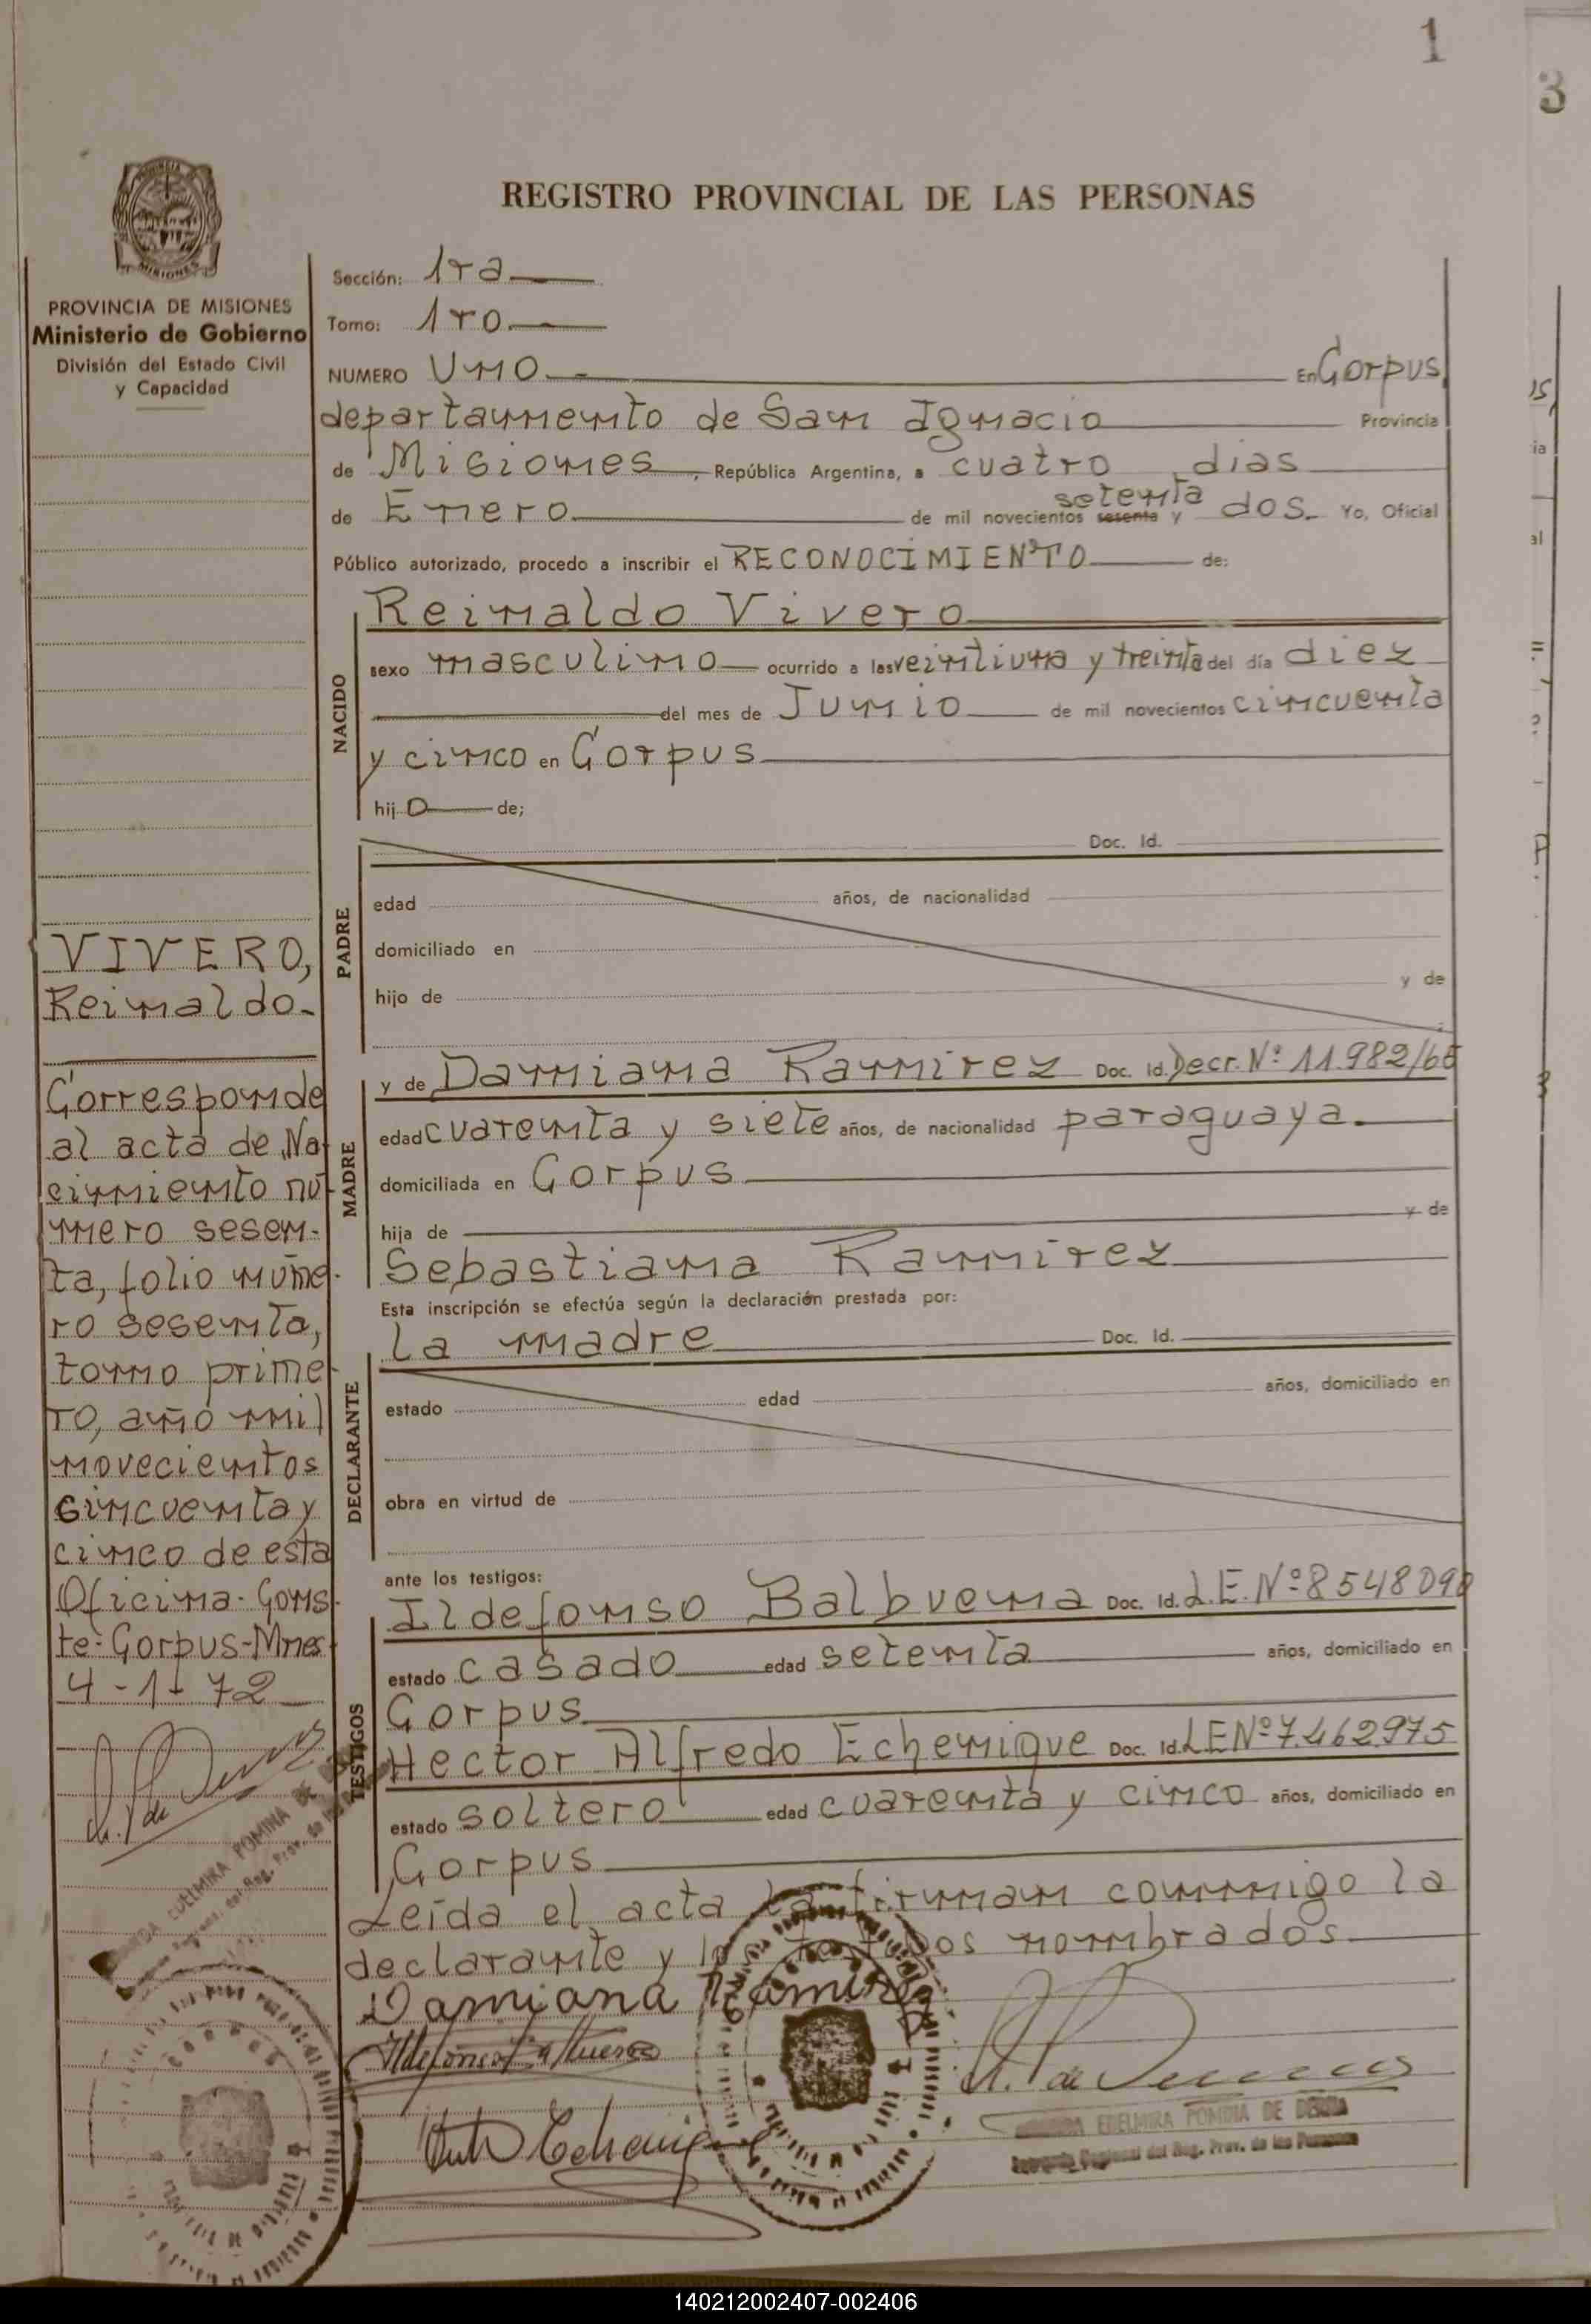 1
3
REGISTRO PROVINCIAL DE LAS PERSONAS
PROVINCIA DE MISIONES
Ministerio de Gobierno
División del Estado Civil
y Capacidad
Sección: 1ra
Tomo: 1ro
NUMERO Uno En Corpus,
departamento de San Ignacio Provincia
de Misiones, República Argentina, a cuatro dias
de Enero de mil novecientos sesenta setenta y dos. Yo, Oficial
Público autorizado, procedo a inscribir el RECONOCIMIENTO de:
NACIDO
Reinaldo Vivero
sexo masculino ocurrido a las veintiuna y treinta del día diez
del mes de Junio de mil novecientos cincuenta
y cinco en Corpus
hijo de;
PADRE
Doc. Id.
edad años, de nacionalidad
domiciliado en
hijo de y de
MADRE
y de Damiana Ramirez Doc. Id. Decr. Nº 11.982/65
edad cuarenta y siete años, de nacionalidad paraguaya.
domiciliada en Corpus
hija de y de
Sebastiana Ramirez
Esta inscripción se efectúa según la declaración prestada por:
DECLARANTE
la madre Doc. Id.
estado edad años, domiciliado en
obra en virtud de
ante los testigos:
TESTIGOS
Ildefonso Balbuena Doc. Id. L.E. Nº 8548090
estado casado edad setenta años, domiciliado en
Corpus
Hector Alfredo Echenique Doc. Id. LE Nº 7.462.975
estado soltero edad cuarenta y cinco años, domiciliado en
Corpus
Leída el acta la firman conmigo la
declarante y los testigos nombrados
Damiana Ramirez
EDELMIRA POMINA DE
del Reg. Prov. de las Personas
VIVERO,
Reinaldo-
Corresponde
al acta de Na-
cimiento nú-
mero sesen-
ta, folio núme-
ro sesenta,
tomo prime-
ro, año mil
novecientos
cincuenta y
cinco de esta
Oficina. Cons-
te: Corpus-Mnes-
4-1-72
EDELMIRA POMINA DE
Reg. Prov. de las
140212002407-002406